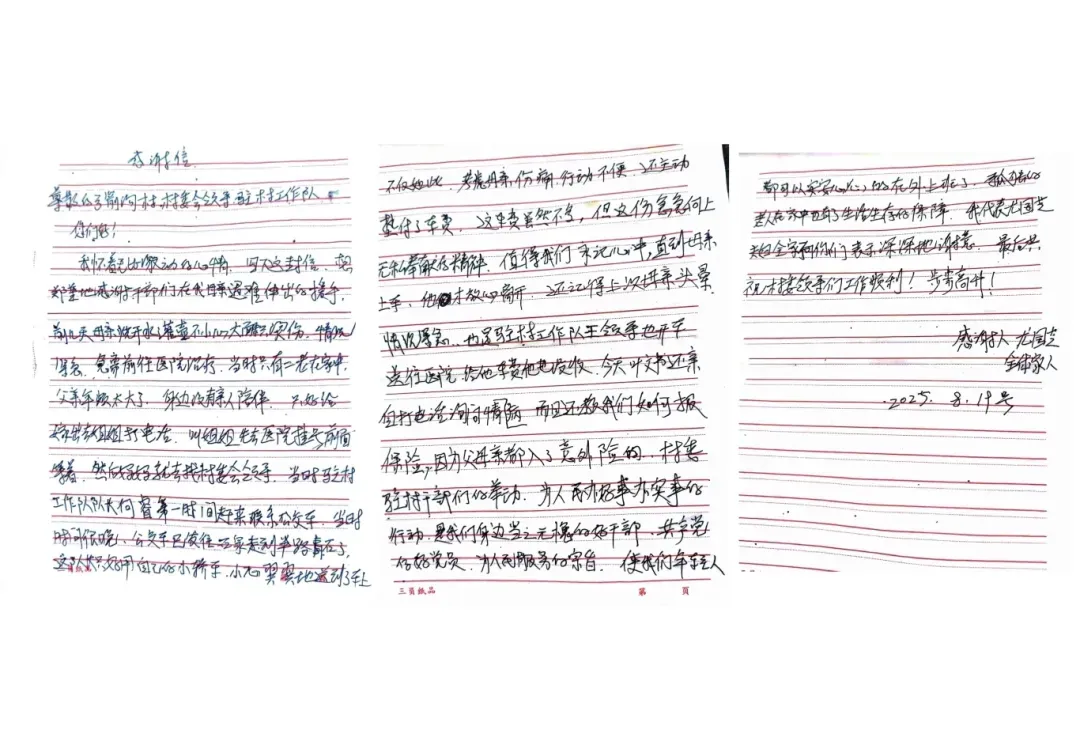 感谢信
尊敬的 前沟村村委会领导驻村工作队
你们好！
我怀着 激动的心情，写下这封信，
郑重地感谢干部们在我母亲遇难伸出的援手，
前几天母亲烧开水灌壶不小心大腿 烫伤，情况
紧急，急需前往医院治疗，当时只有二老在家中，
父亲年龄太大了，身边没有亲人陪伴，只好给
姐姐打电话，叫姐姐先去医院挂号前面
等着，然后妈妈就去找村委会领导，当时驻村
工作队队长何睿第一时间赶来联系公交车，当时
时间很晚，公交车已 走到半路 了，
队长 用自己的小轿车，小心翼翼地送到了车上
不仅如此，考虑母亲伤病，行动不便，还主动
垫付了车费，这车费虽然不多，但这份高尚向上
无私奉献的精神，值得我们永记心中，直到母亲
上车，他才放心离开，还记得上次母亲头晕
情况紧急，也是驻村工作队王领导也开车
送往医院，给他车费他也没收，今天叶文书还亲
自打电话询问情病，而且还教我们如何报
保险，因为父母亲都入了意外险的，村委
驻村干部们的举动，为人民办好事办实事的
行动，是我们身边当之无愧的好干部，共产党
的好党员，为人民服务的宗旨，使我们年轻人
都可以安安心心的在外上班了，
老人在家中也有了生活生存的保障，我代表尤国
全家向你们表示深深地谢意，最后，
祝村 领导们工作顺利！步步高升！
感谢人 尤国
全体家人
2025. 8. 19号
三贝纸品
第 页